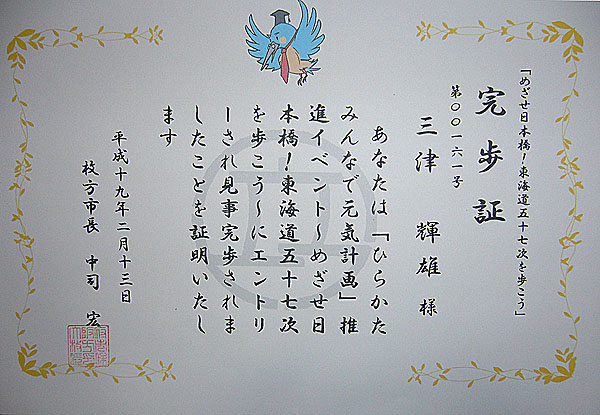 「めざせ日本橋!東海道五十七次を歩こう」
完歩証
第〇〇一六一号
三津 輝雄 様
あなたは「ひらかた
みんなで元気計画」推
進イベント～めざせ日
本橋!東海道五十七次
を歩こう～にエントリ
ーされ見事完歩されま
したことを証明いたし
ます
平成十九年二月十三日
枚方市長 中司 宏